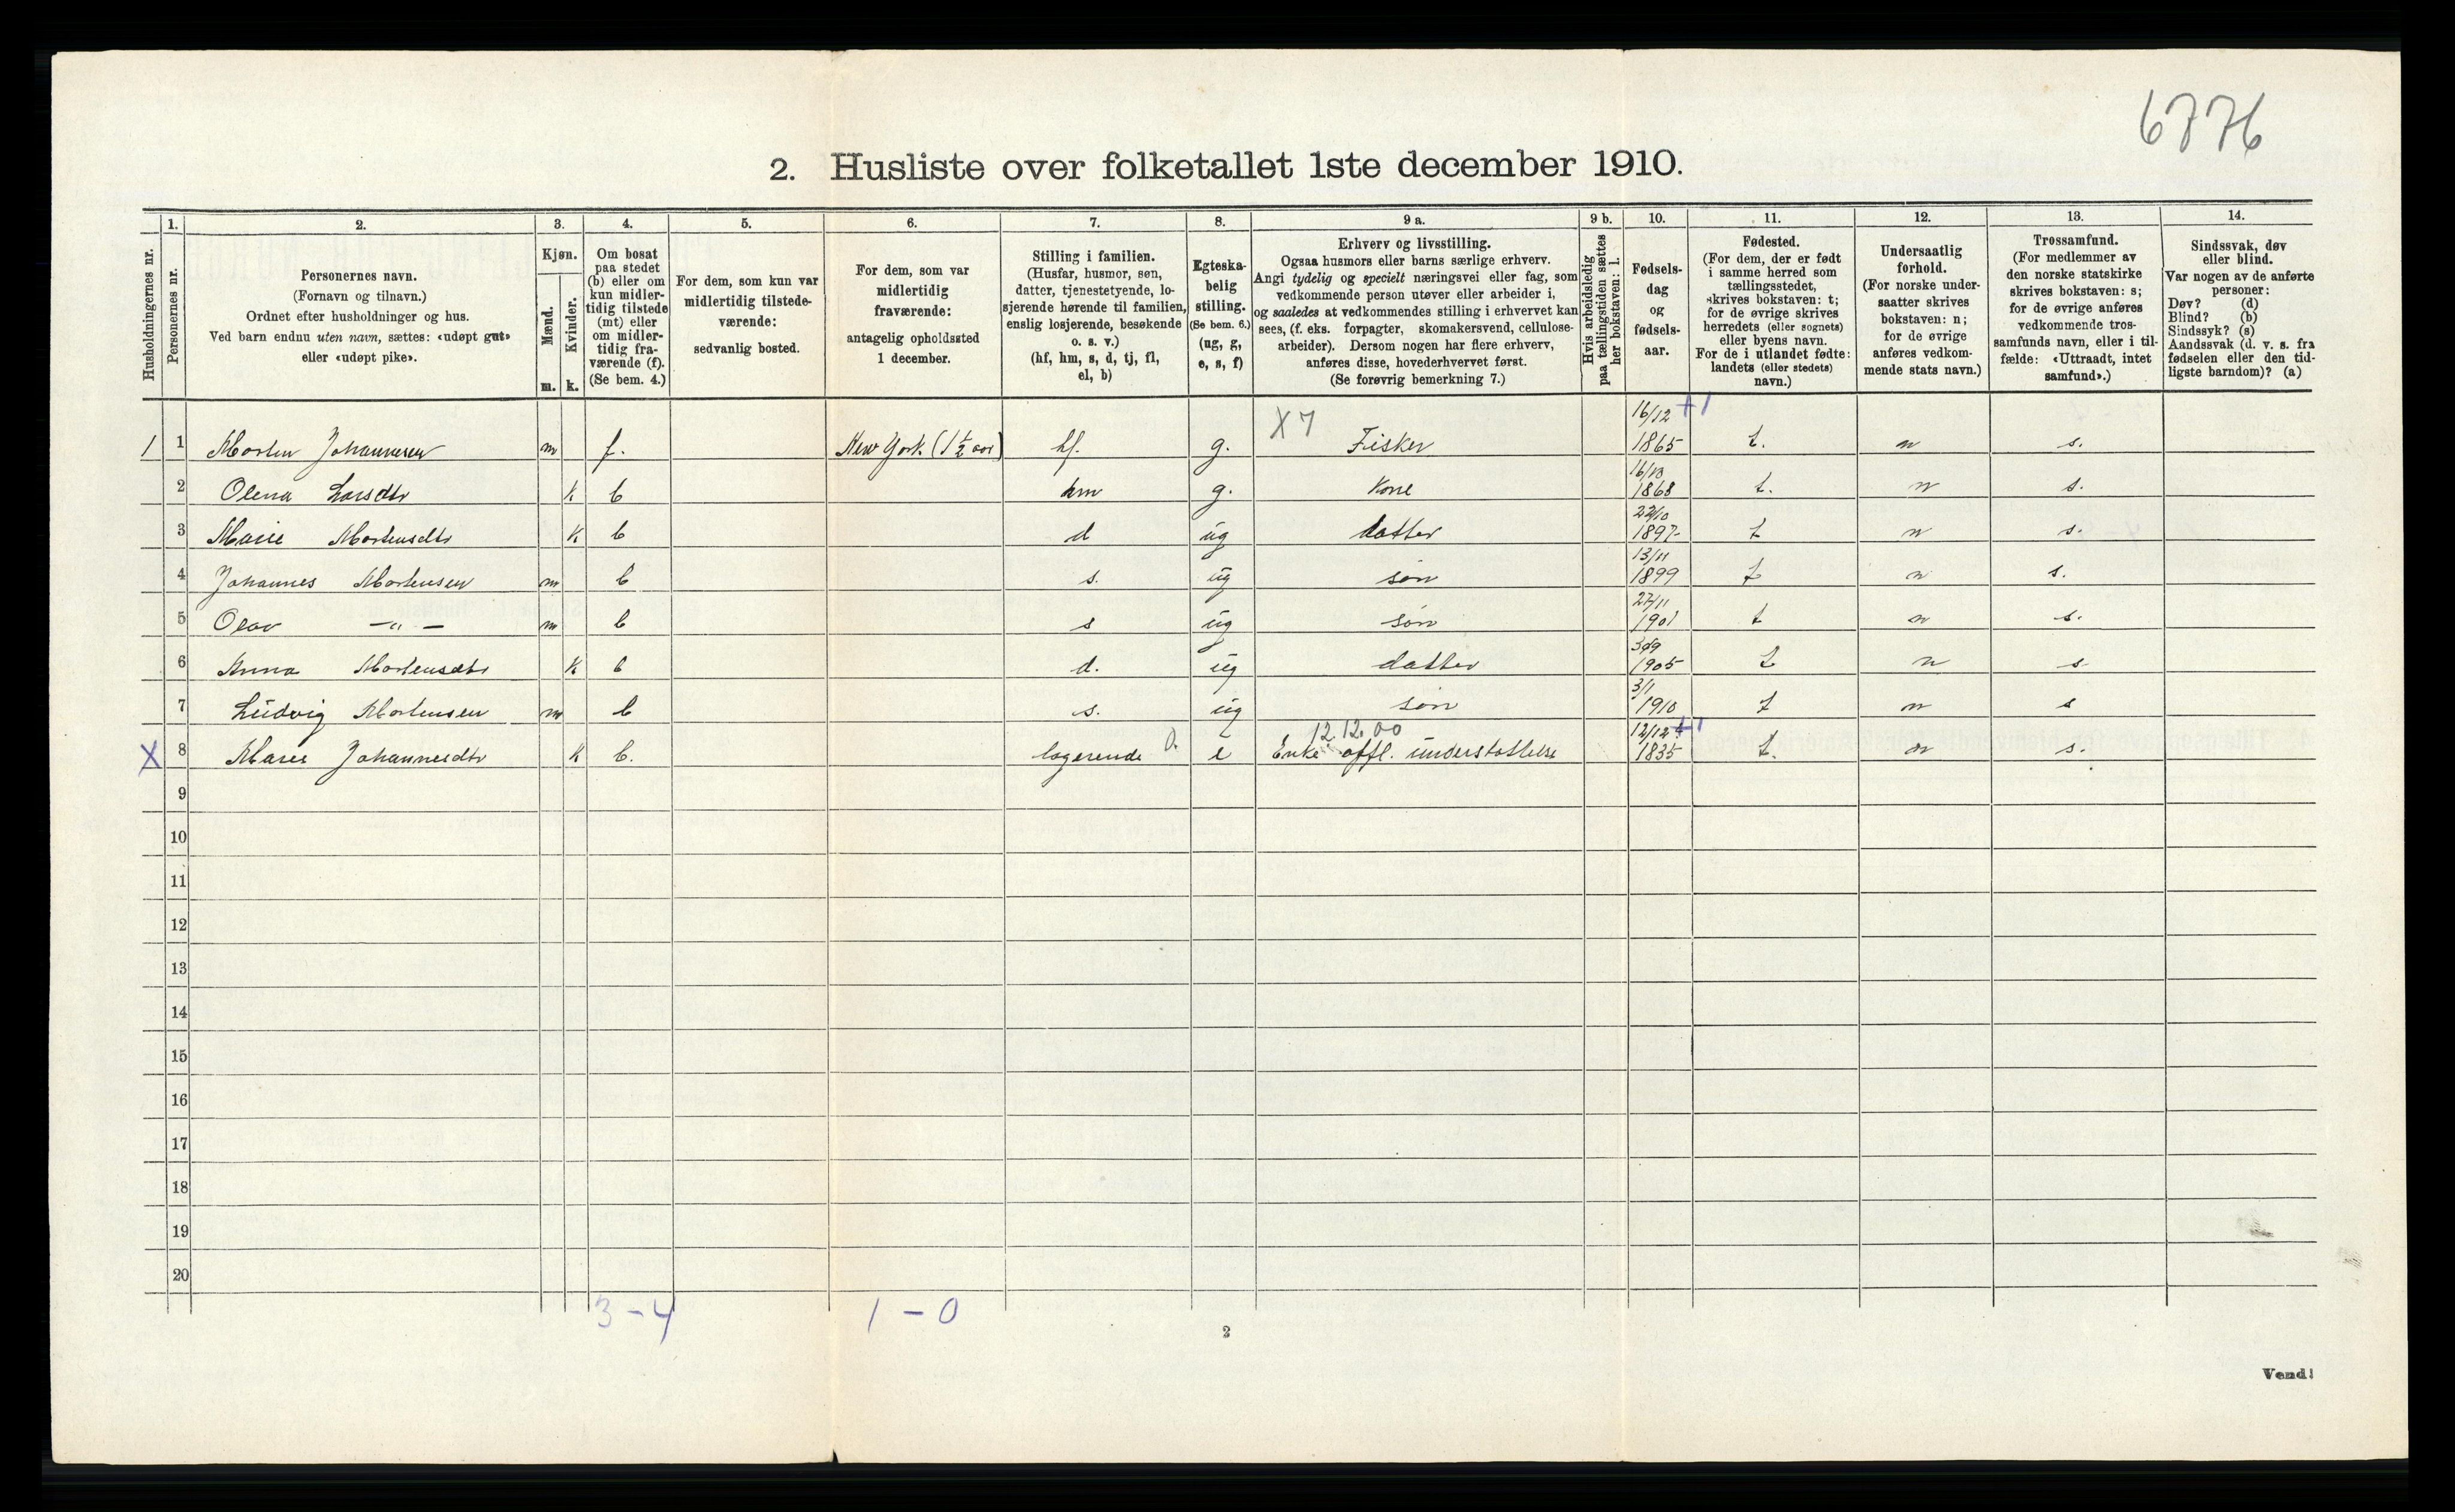 6776
2. Husliste over folketallet 1ste december 1910.
1. 2. 3. 4. 5. 6. 7. 8. 9 a. 9 b. 10. 11. 12. 13. 14.
Husholdningernes nr.
Personernes nr.
Personernes navn.
(Fornavn og tilnavn.)
Ordnet efter husholdninger og hus.
Ved barn endnu uten navn, sættes: «udøpt gut»
eller «udøpt pike».
Kjøn.
Mænd.
Kvinder.
m. k.
Om bosat
paa stedet
(b) eller om
kun midler-
tidig tilstede
(mt) eller
om midler-
tidig fra-
værende (f).
(Se bem. 4.)
For dem, som kun var
midlertidig tilstede-
værende:
sedvanlig bosted.
For dem, som var
midlertidig
fraværende:
antagelig opholdssted
1 december.
Stilling i familien.
(Husfar, husmor, søn,
datter, tjenestetyende, lo-
sjerende hørende til familien,
enslig losjerende, besøkende
o. s. v.)
(hf, hm, s, d, tj, fl,
el, b)
Egteska-
belig
stilling.
(Se bem. 6.)
(ug, g,
e, s, f)
Erhverv og livsstilling.
Ogsaa husmors eller barns særlige erhverv.
Angi tydelig og specielt næringsvei eller fag, som
vedkommende person utøver eller arbeider i,
og saaledes at vedkommendes stilling i erhvervet kan
sees, (f. eks. forpagter, skomakersvend, cellulose-
arbeider). Dersom nogen har flere erhverv,
anføres disse, hovederhvervet først.
(Se forøvrig bemerkning 7.)
Hvis arbeidsledig
paa tællingstiden sættes
her bokstaven: l.
Fødsels-
dag
og
fødsels-
aar.
Fødested.
(For dem, der er født
i samme herred som
tællingsstedet,
skrives bokstaven: t;
for de øvrige skrives
herredets (eller sognets)
eller byens navn.
For de i utlandet fødte:
landets (eller stedets)
navn.)
Undersaatlig
forhold.
(For norske under-
saatter skrives
bokstaven: n;
for de øvrige
anføres vedkom-
mende stats navn.)
Trossamfund.
(For medlemmer av
den norske statskirke
skrives bokstaven: s;
for de øvrige anføres
vedkommende tros-
samfunds navn, eller i til-
fælde: «Uttraadt, intet
samfund».)
Sindssvak, døv
eller blind.
Var nogen av de anførte
personer:
Døv? (d)
Blind? (b)
Sindssyk? (s)
Aandssvak (d. v. s. fra
fødselen eller den tid-
ligste barndom)? (a)
X 7 16/12 +1
1 1 Morten Johannesen m f. New York (1 ½ aar) hf. g. Fisker 1865 t. n s.
2 Olena Larsdtr k b hm g. Kone 1868 t. n s.
22/10
3 Marie Mortensdtr k b d ug datter 1897 t n s.
13/11
4 Johannes Mortensen m b s. ug søn 1899 t n s.
27/11
5 Olav — „ — m b s ug søn 1901 t n s.
6 Anna Mortensdtr k b d. ug datter 1905 t n s
3/1
7 Ludvig Mortensen m b s. ug søn 1910 t n s
12.12.00 12/12 +1
X 8 Maree Johannesdtr k b. logerende 0. e Enke offl. understøttelse 1835 t. n s.
9
10
11
12
13
14
15
16
17
18
19
20
3 – 4 1 – 0
2
Vend!